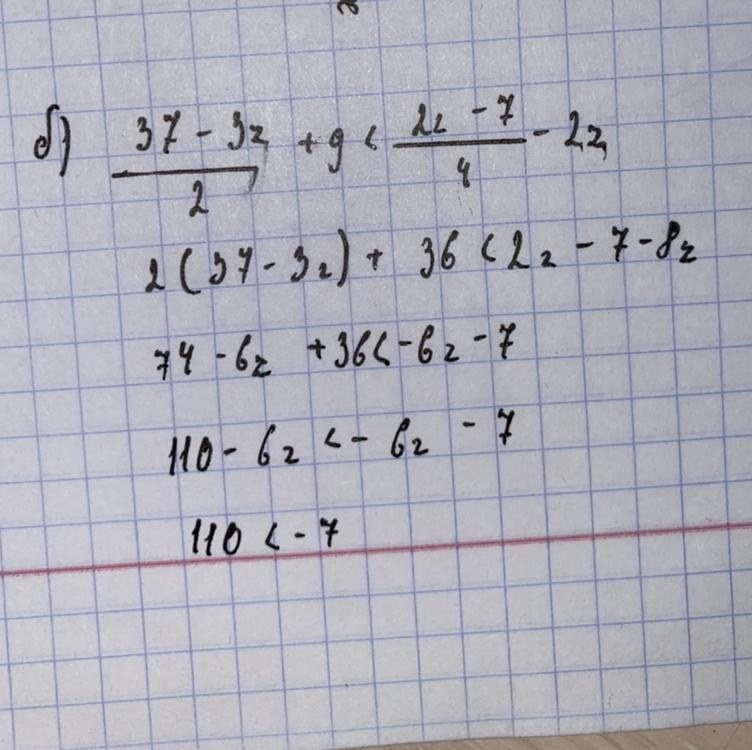 б) (37 - 3z)/2 + 9 < (2z - 7)/4 - 2z
2(37 - 3z) + 36 < 2z - 7 - 8z
74 - 6z + 36 < -6z - 7
110 - 6z < - 6z - 7
110 < - 7